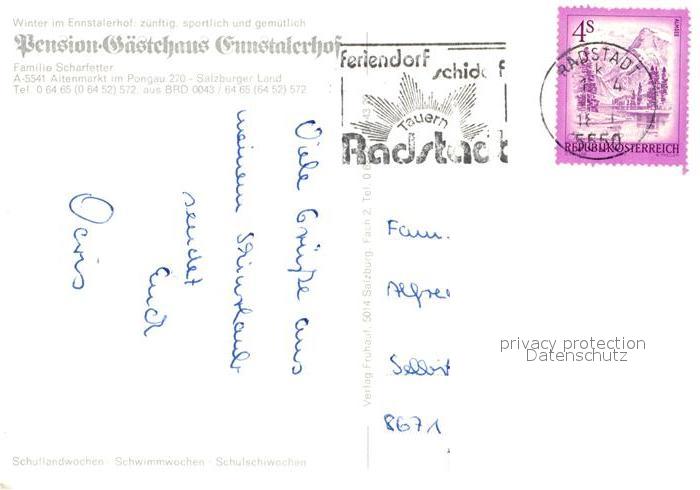 Winter im Ennstalerhof: zünftig, sportlich und gemütlich
Pension-Gästehaus Ennstalerhof
Familie Scharfetter
A-5541 Altenmarkt im Pongau 220 - Salzburger Land
Tel. 0 64 65 (0 64 52) 572, aus BRD 0043 / 64 65 (64 52) 572
Viele Grüße aus
meinem Skiurlaub
sendet Euch
Doris
Schullandwochen - Schwimmwochen - Schulschiwochen
Verlag Fruhauf, 5014 Salzburg, Fach 2, Tel. 0 6
feriendorf
schidorf
Tauern
Radstadt
4S
ALMSEE
RADSTADT
5550
REPUBLIK ÖSTERREICH
Fam.
Alfre
Selbit
8671
privacy protection
Datenschutz